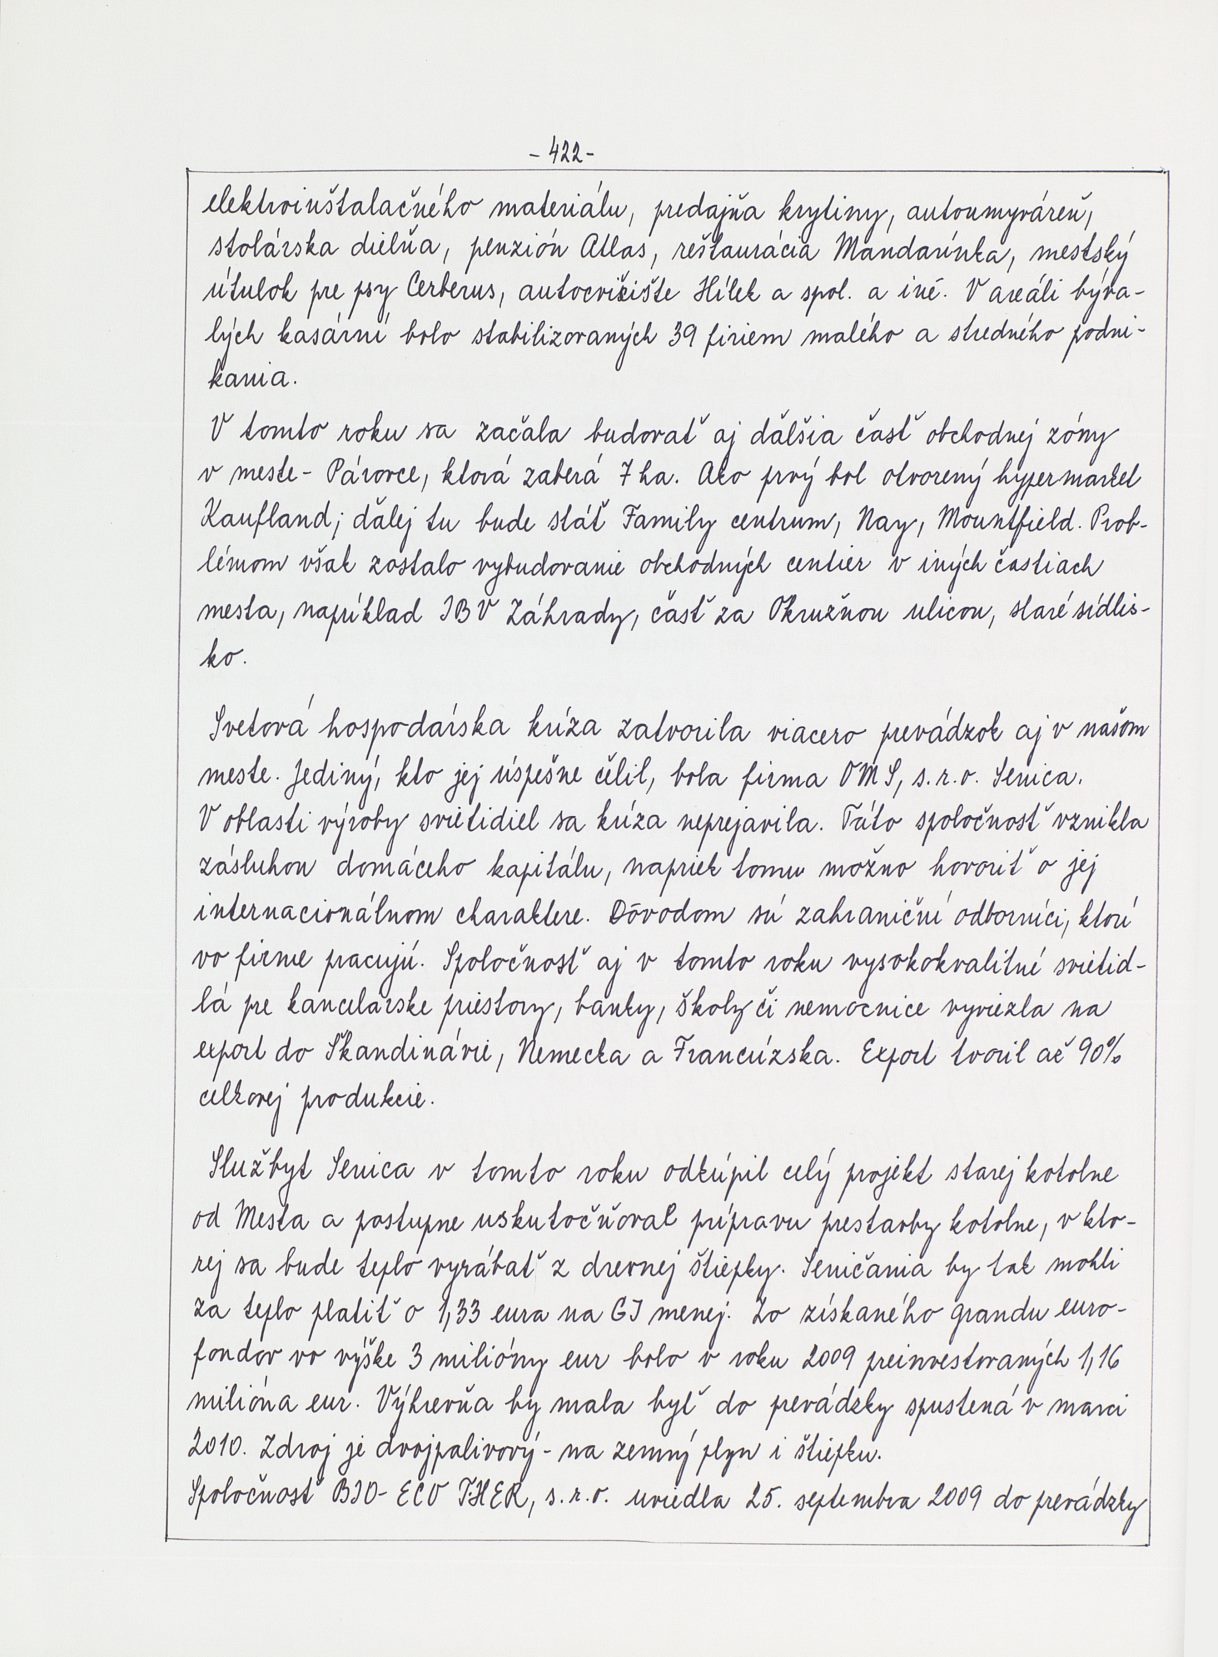 - 422 -
elektroinštalačného materiálu, predajňa krytiny, autoumyváreň,
stolárska dielňa, penzión Atlas, reštaurácia Mandarínka, mestský
útulok pre psy Cerberus, autocvičište Hílek a spol. a iné. V areáli býva-
lých kasární bolo stabilizovaných 39 firiem malého a stredného podni-
kania.
V tomto roku sa začala budovať aj ďalšia časť obchodnej zóny
v meste - Párovce, ktorá zaberá 7 ha. Ako prvý bol otvorený hypermarket
Kaufland; ďalej tu bude stáť Family centrum, Nay, Mountfield. Prob-
lémom však zostalo vybudovanie obchodných centier v iných častiach
mesta, napríklad IBV Záhrady, časť za Okružnou ulicou, staré sídlis-
ko.
Svetová hospodárska kríza zatvorila viacero prevádzok aj v našom
meste. Jediný, kto jej úspešne čelil, bola firma OMS, s.r.o. Senica.
V oblasti výroby svietidiel sa kríza neprejavila. Táto spoločnosť vznikla
zásluhou domáceho kapitálu, napriek tomu možno hovoriť o jej
internacionálnom charaktere. Dôvodom sú zahraniční odborníci, ktorí
vo firme pracujú. Spoločnosť aj v tomto roku vysokokvalitné svietid-
lá pre kancelárske priestory, banky, školy či nemocnice vyviezla na
export do Škandinávie, Nemecka a Francúzska. Export tvoril až 90%
celkovej produkcie.
Službyt Senica v tomto roku odkúpil celý projekt starej kotolne
od Mesta a postupne uskutočňoval prípravu prestavby kotolne, v kto-
rej sa bude teplo vyrábať z drevnej štiepky. Seničania by tak mohli
za teplo platiť o 1,33 eura na GJ menej. Zo získaného grandu euro-
fondov vo výške 3 milióny eur bolo v roku 2009 preinvestovaných 1,16
milióna eur. Výhrevňa by mala byť do prevádzky spustená v marci
2010. Zdroj je dvojpalivový - na zemný plyn i štiepku.
Spoločnosť BIO- ECO THER, s.r.o. uviedla 25. septembra 2009 do prevádzky